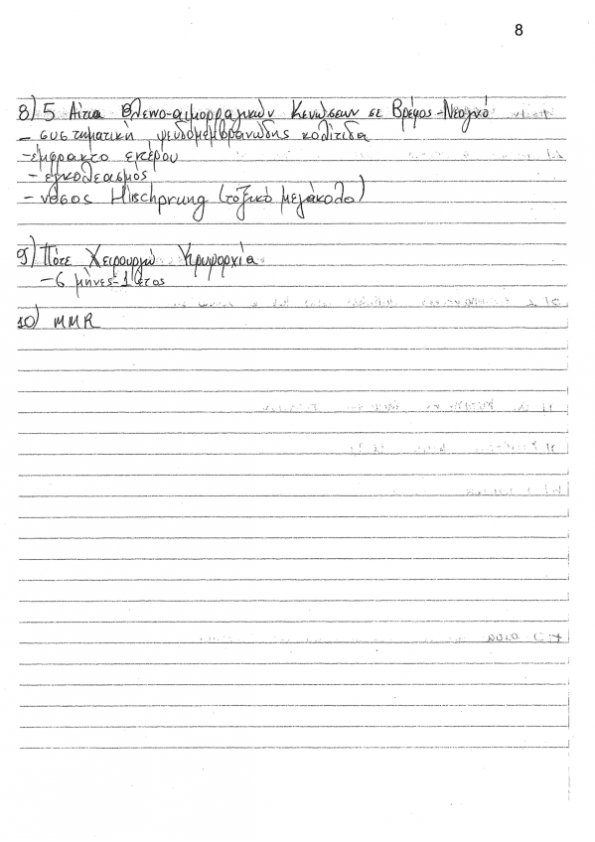 8
8) 5 Αίτια Βλεννο-αιμορραγικών Κενώσεων σε Βρέφος-Νεογνό
- συστηματική ψευδομεμβρανώδης κολίτιδα
-έμφρακτο εντέρου
- εγκολεασμός
- νόσος Hischprung (τοξικό μεγάκολο)
9) Πότε Χειρουργώ Κρυψορχία
-6 μήνες-1 έτος
10) MMR